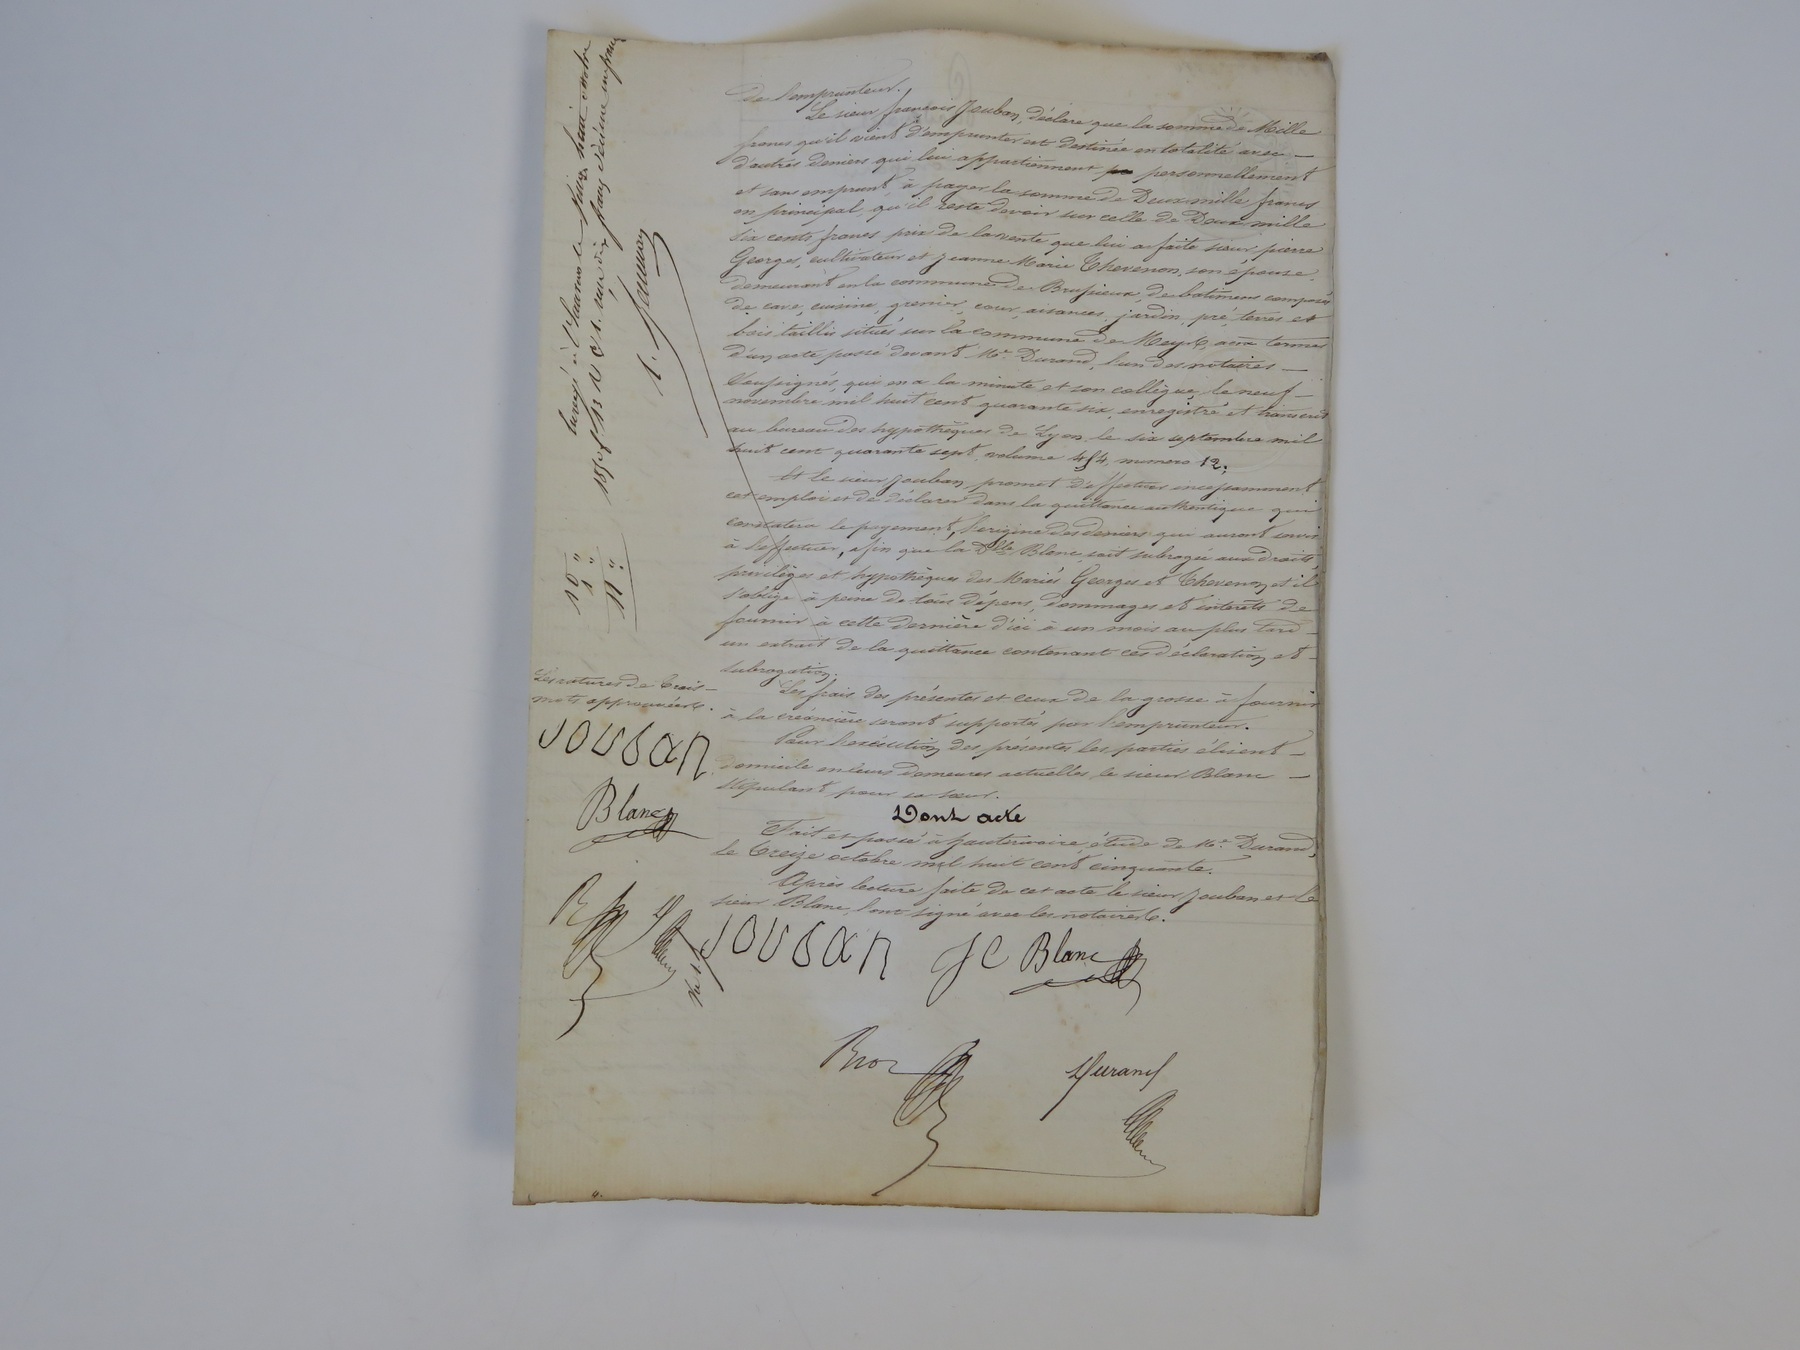 de l'emprunteur.
Le sieur françois Jouban, déclare que la somme de Mille
francs qu'il vient d'emprunter est destinée en totalité avec
d'autres deniers qui lui appartiennent personnellement
et sans emprunt, à payer la somme de Deux mille francs
en principal, qu'il reste devoir sur celle de Deux mille
six cents francs prix de la vente que lui a faite sieur pierre
Georges, cultivateur et Jeanne Marie Thevenon, son épouse,
demeurant en la commune de Brussieux, de batimens composés
de cave, cuisine, grenier, cour, aisances, jardin, pré, terres et
bois taillis situés sur la commune de Meys, aux termes
d'un acte passé devant Me. Durand, l'un des notaires
soussignés, qui en a la minute et son collègue, le neuf
novembre mil huit cent quarante six, enregistré et transcrit
au bureau des hypothèques de Lyon le six septembre mil
huit cent quarante sept, volume 454, numero 12.
Et le sieur Jouban, promet d'effectuer incessamment
cet emploi et de déclarer dans la quittance authentique qui
constatera le payement, l'origine des deniers qui auront servi
à l'effectuer, afin que la Dlle Blanc, soit subrogée aux droits,
privilèges et hypothèques des Mariés Georges et Thevenon, et il
s'oblige à peine de tous dépens, dommages et intérêts de
fournir à cette dernière d'ici à un mois au plus tard
un extrait de la quittance contenant ces déclaration et
subrogation.
Les frais des présentes et ceux de la grosse à fournir
à la créancière seront supportés par l'emprunteur.
Pour l'exécution des présentes les parties élisent
domicile en leurs demeures actuelles, le sieur Blanc
stipulant pour sa sœur.
Dont acte
Fait et passé à hauterivoire, étude de Me. Durand,
le treize octobre mil huit cent cinquante.
Après lecture faite de cet acte le sieur Jouban et le
sieur Blanc, l'ont signé avec les notaires.
Jouban JC Blanc
Durand
Les ratures de trois
mots approuvées.
Jouban
Blanc
10 "
1 "
11 "